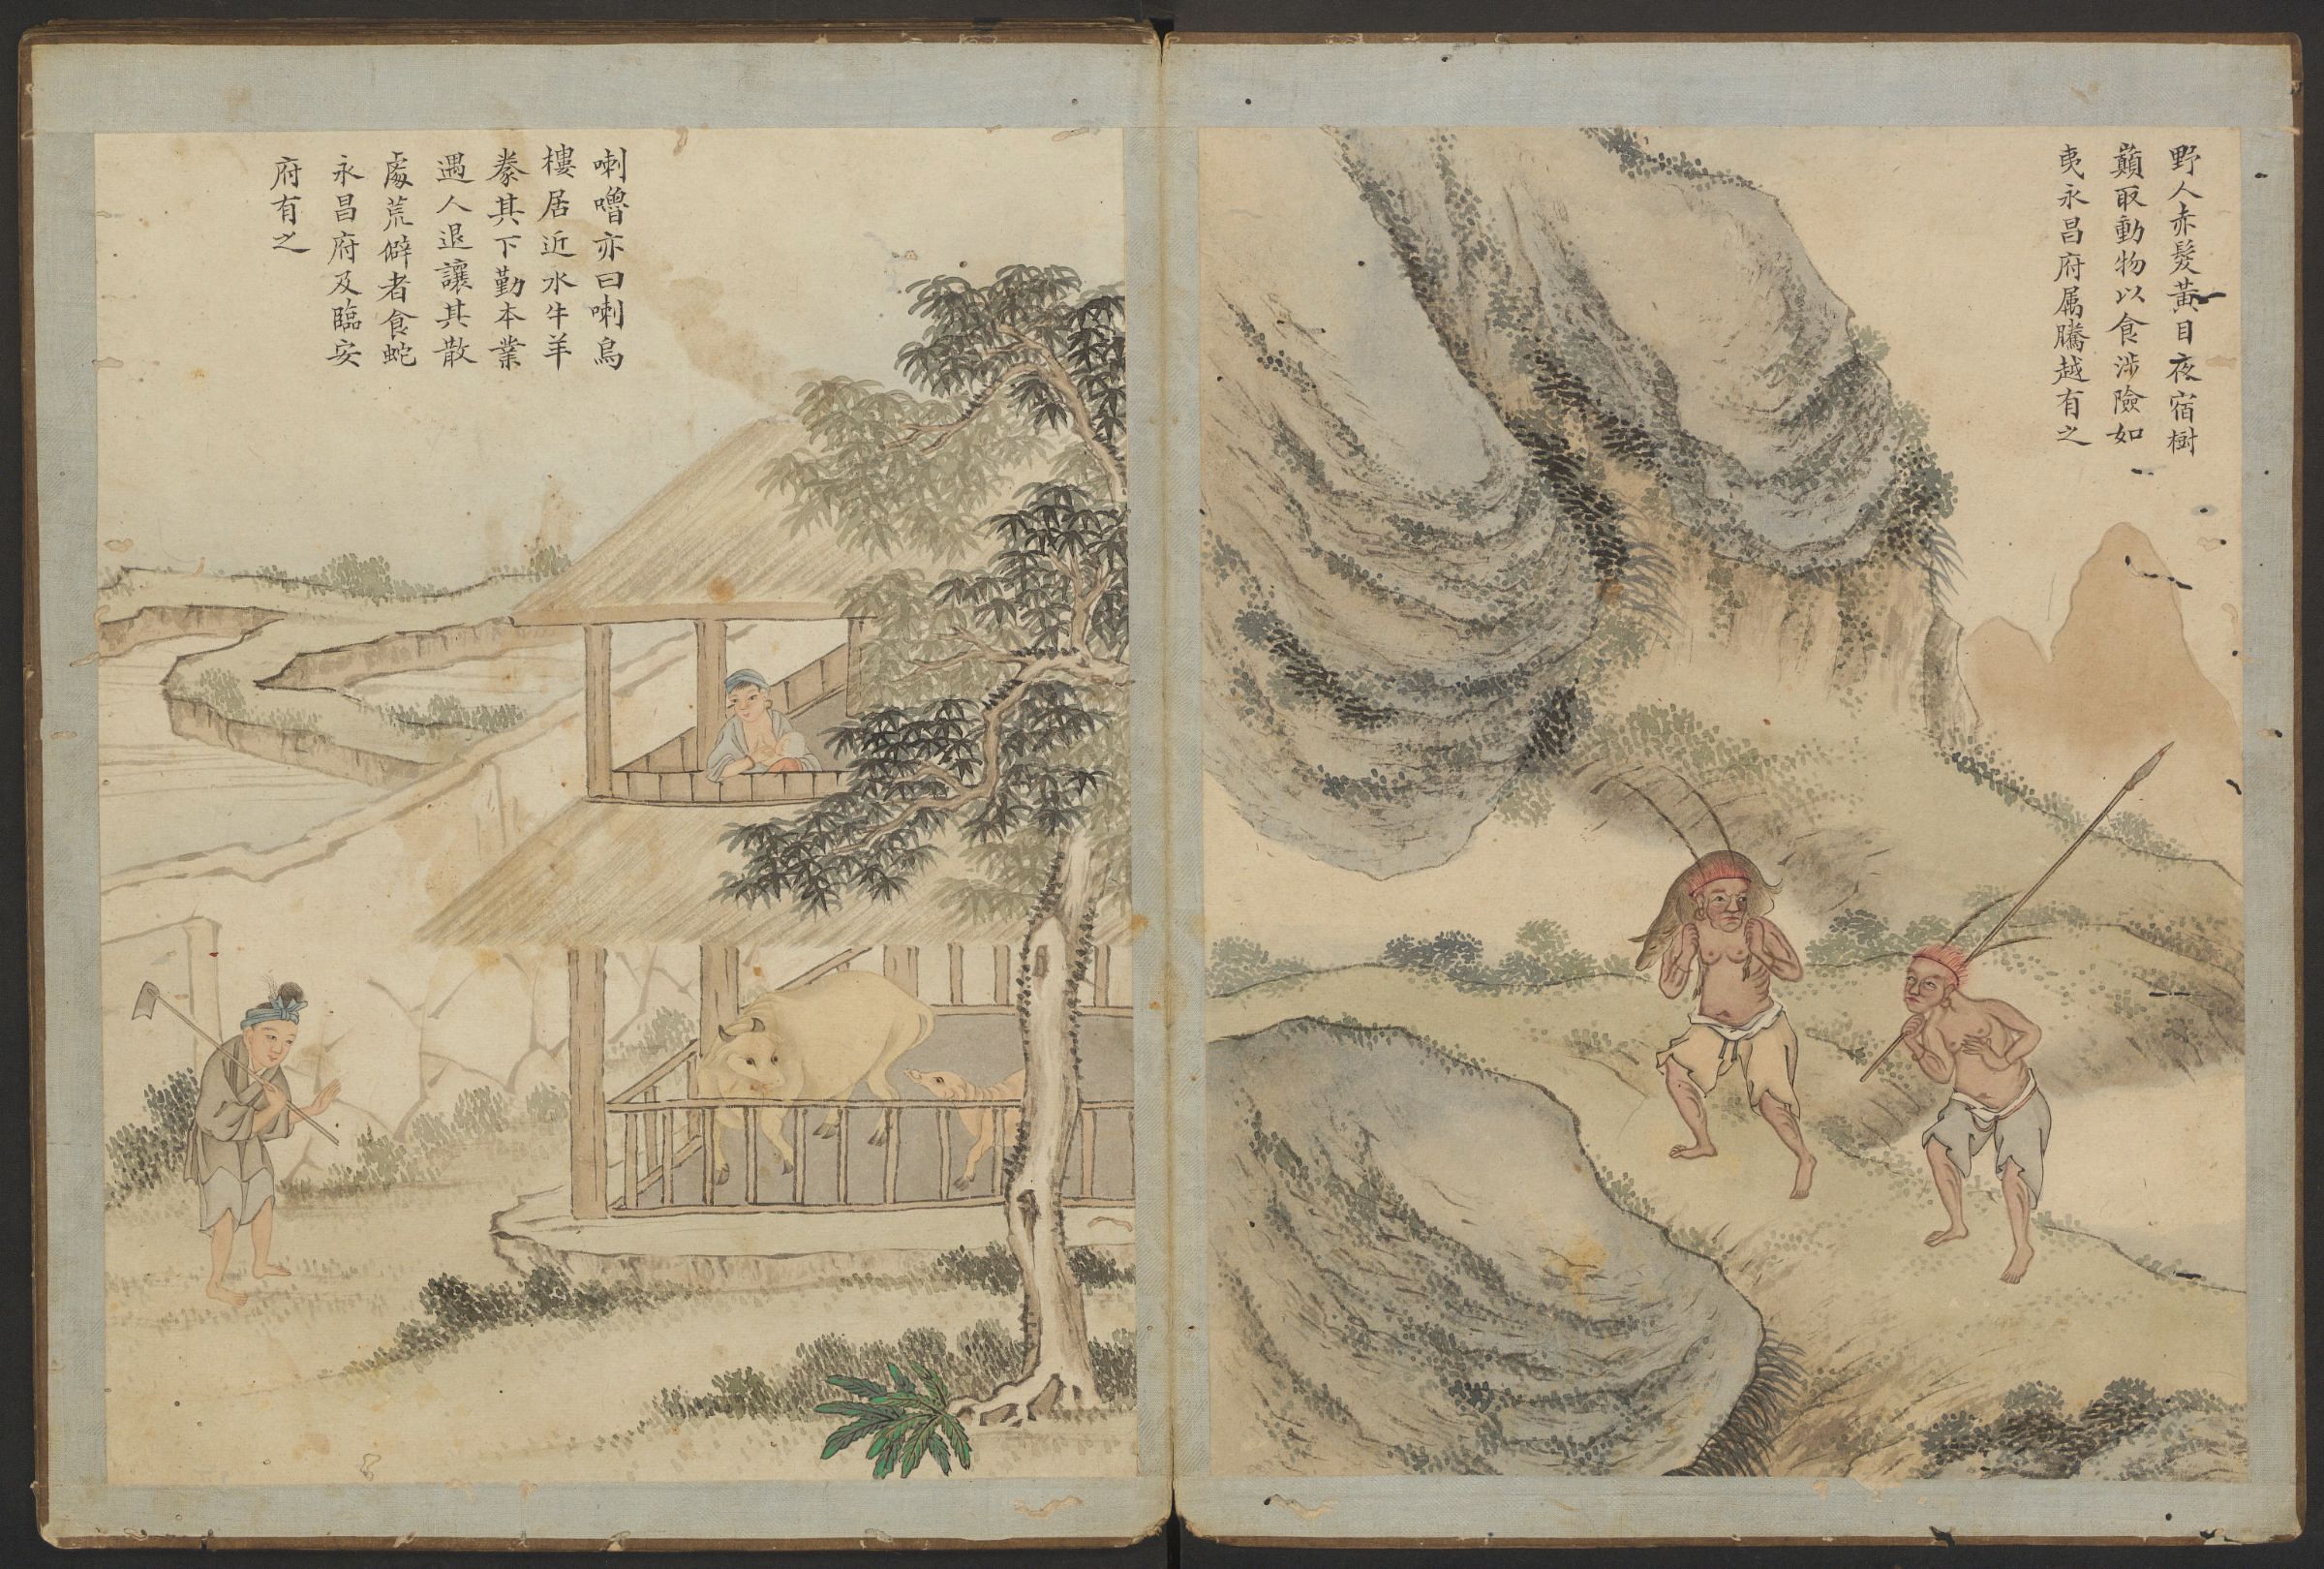 野人赤髮黃目夜宿樹
巔取動物以食涉險如
夷永昌府属騰越有之
喇嚕亦曰喇烏
樓居近水牛羊
豢其下勤本業
遇人退讓其散
處荒僻者食蛇
永昌府及臨安
府有之